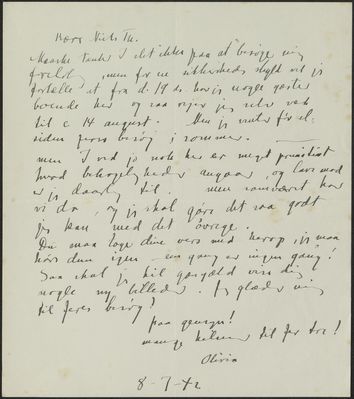 Kære Niels Th.
Maaske tænker I det ikke paa at besøge mig
foreløbig, men for en sikkerheds skyld vil jeg
fortælle at fra d. 19 ds. har jeg nogle gæster
boende her og saa rejser jeg selv væk
til c 14 august. Men jeg venter
jeres besøg i sommer.
men I ved jo nok her er meget primitivt
hvad bekvemmeligheder angaar, og lave mad
er jeg daarlig til. men
vi da, og jeg skal gøre det saa godt
jeg kan med det øvrige.
Du maa tage dine vers med herop, jeg maa
høre dem igen — en gang er ingen gang!
Saa skal jeg til gengæld vise dig
nogle ny billeder. Jeg glæder mig
til jeres besøg!
paa gensyn!
mange hilsner til jer tre!
Olivia
8-7-42